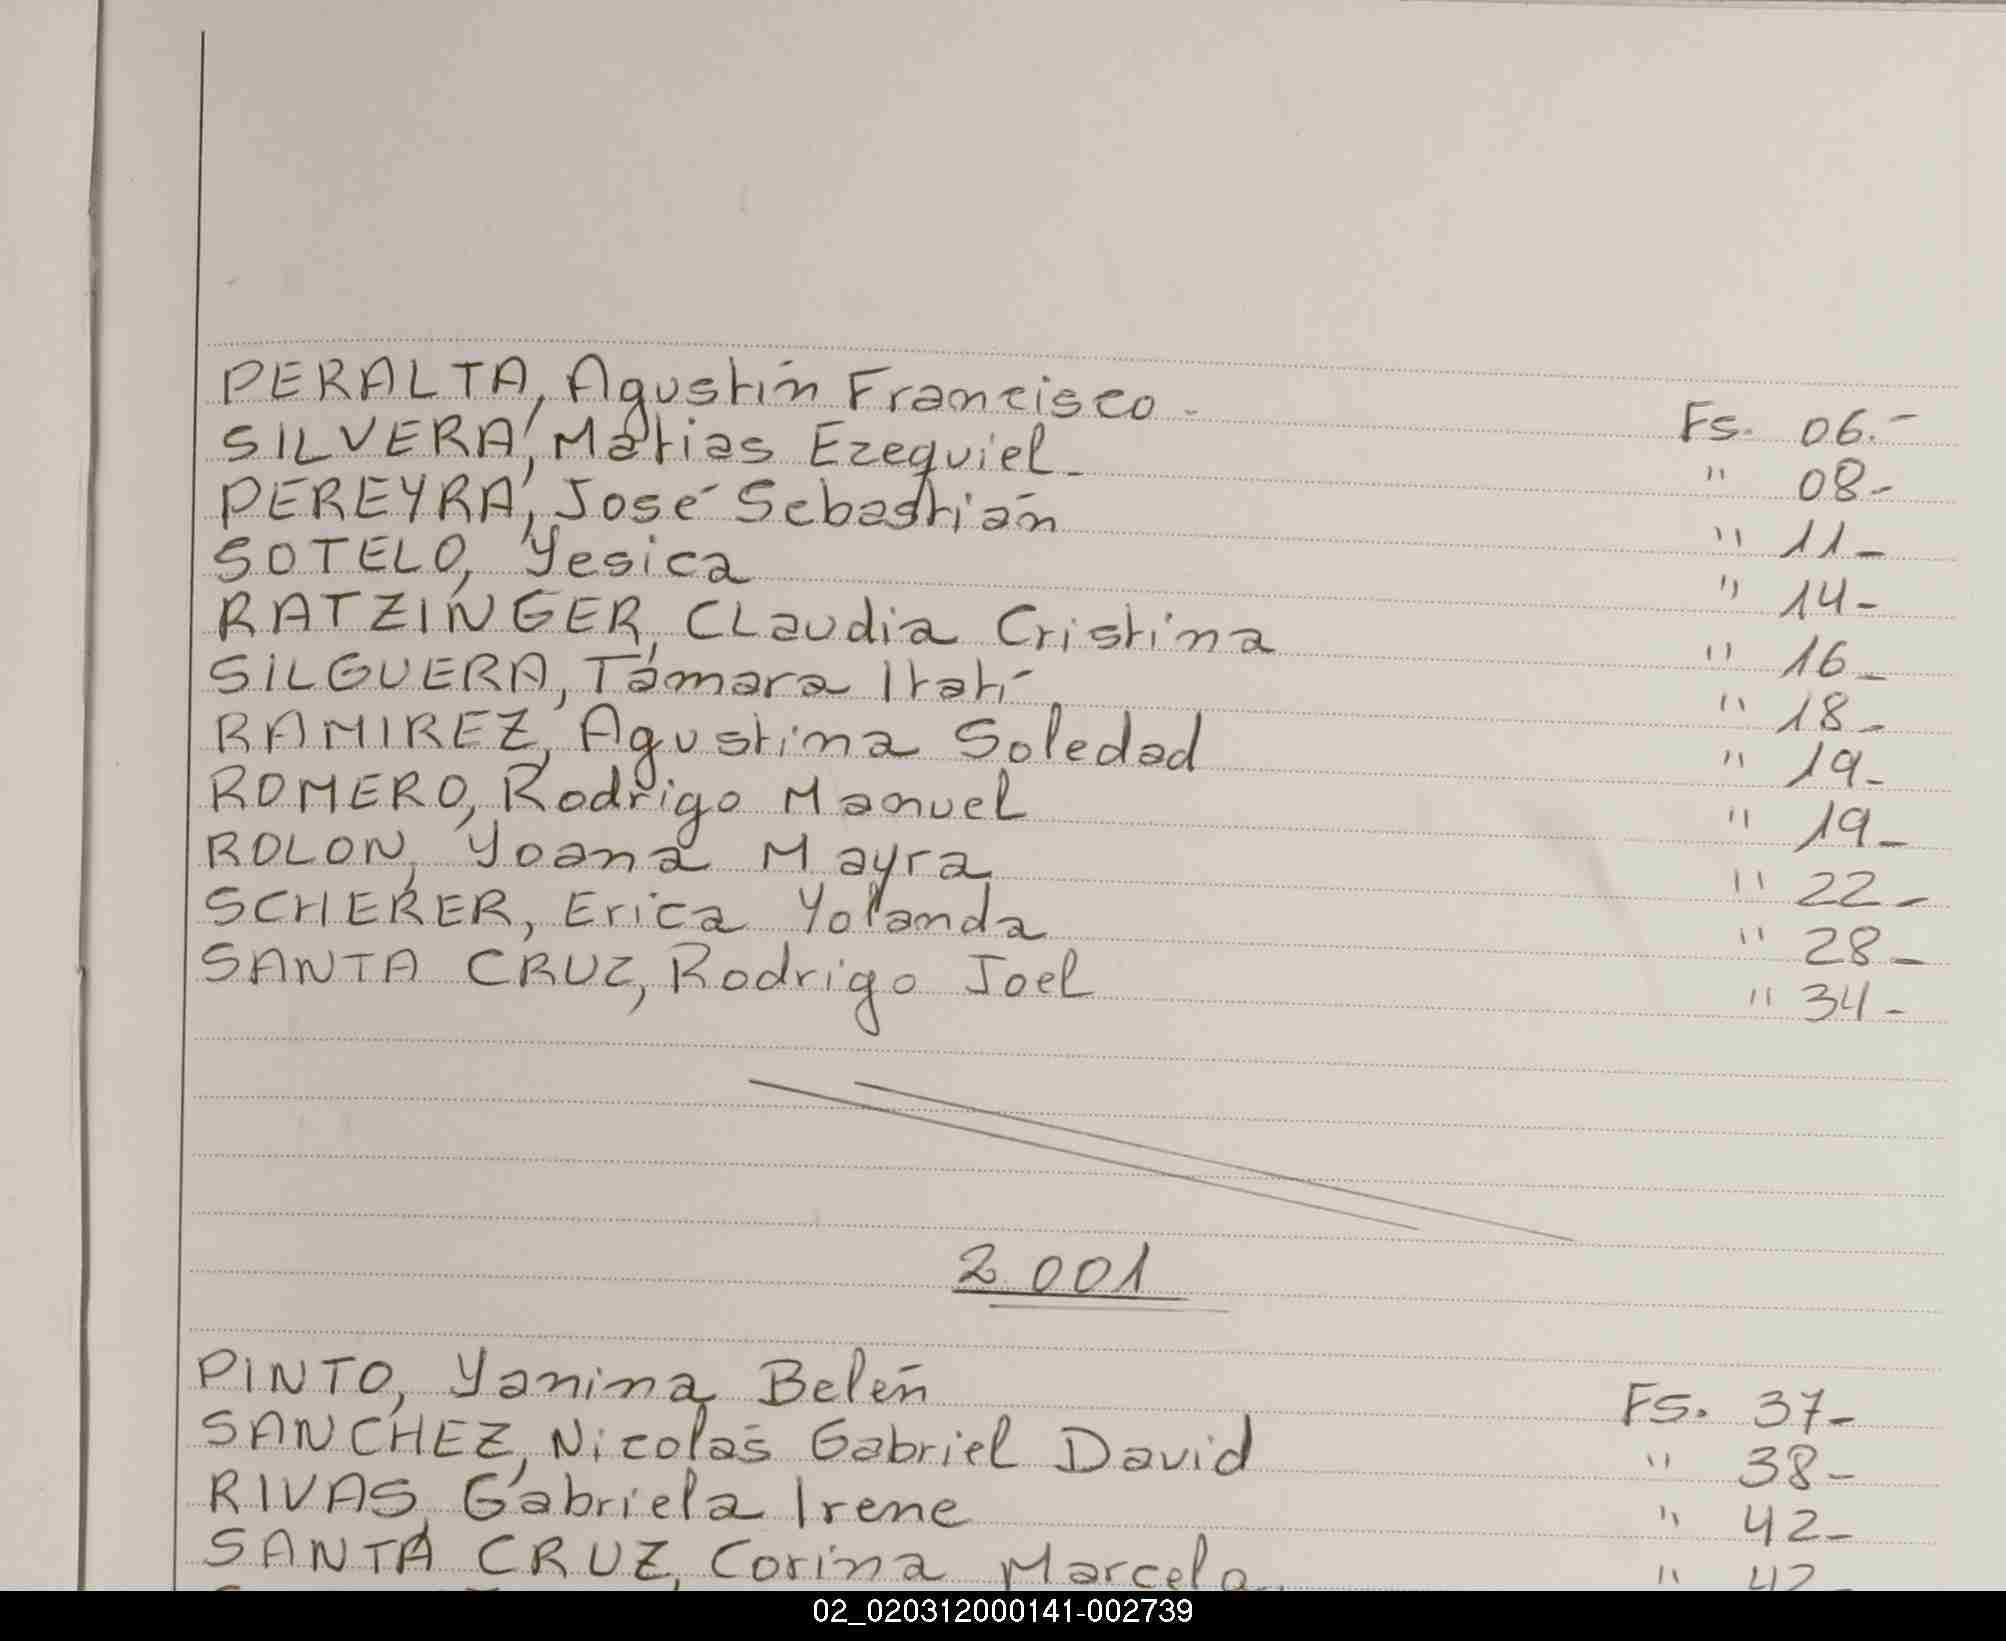 PERALTA, Agustín Francisco - Fs. 06.-
SILVERA, Matías Ezequiel - " 08-
PEREYRA, José Sebastián " 11-
SOTELO, Yesica " 14-
RATZINGER, CLaudia Cristina " 16-
SILGUERA, Tamara Itatí " 18-
RAMIREZ, Agustina Soledad " 19-
ROMERO, Rodrigo Manuel " 19-
ROLON, Yoana Mayra " 22-
SCHERER, Erica Yolanda " 28-
SANTA CRUZ, Rodrigo Joel " 34-
2001
PINTO, Yanina Belén Fs. 37-
SANCHEZ, Nicolás Gabriel David " 38-
RIVAS, Gabriela Irene " 42-
SANTA CRUZ, Corina Marcela. "
02_020312000141-002739